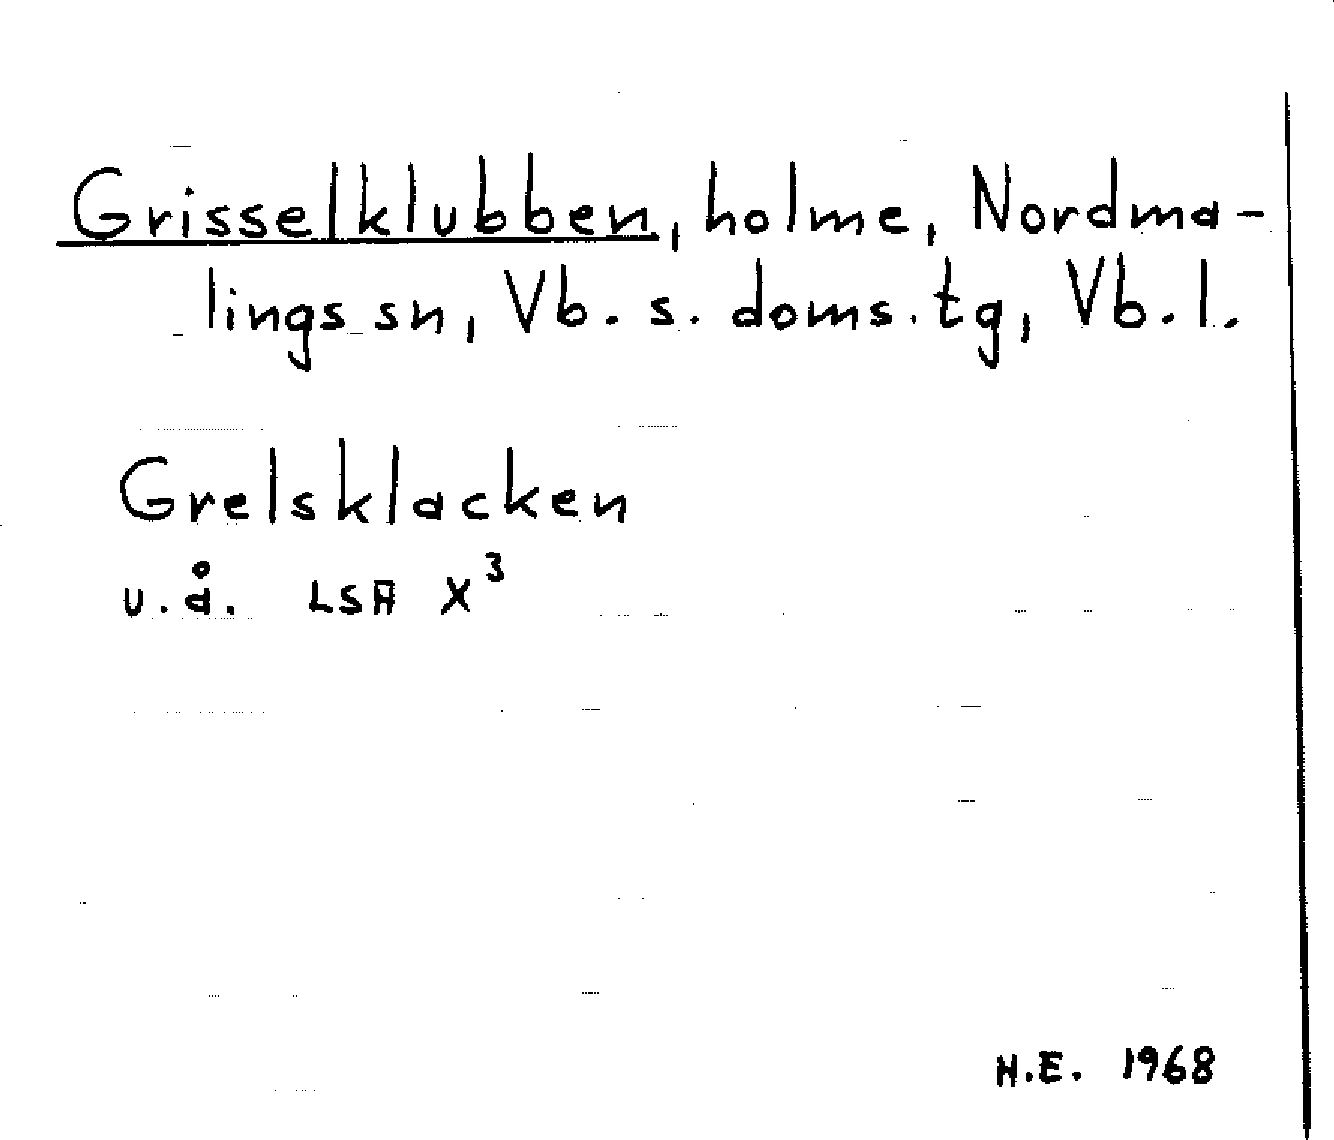 Grisselklubben, holme, Nordma-
lings sn, Vb. s. doms. tg, Vb. l.
Grelsklacken
u.å. LSA X³
H.E. 1968